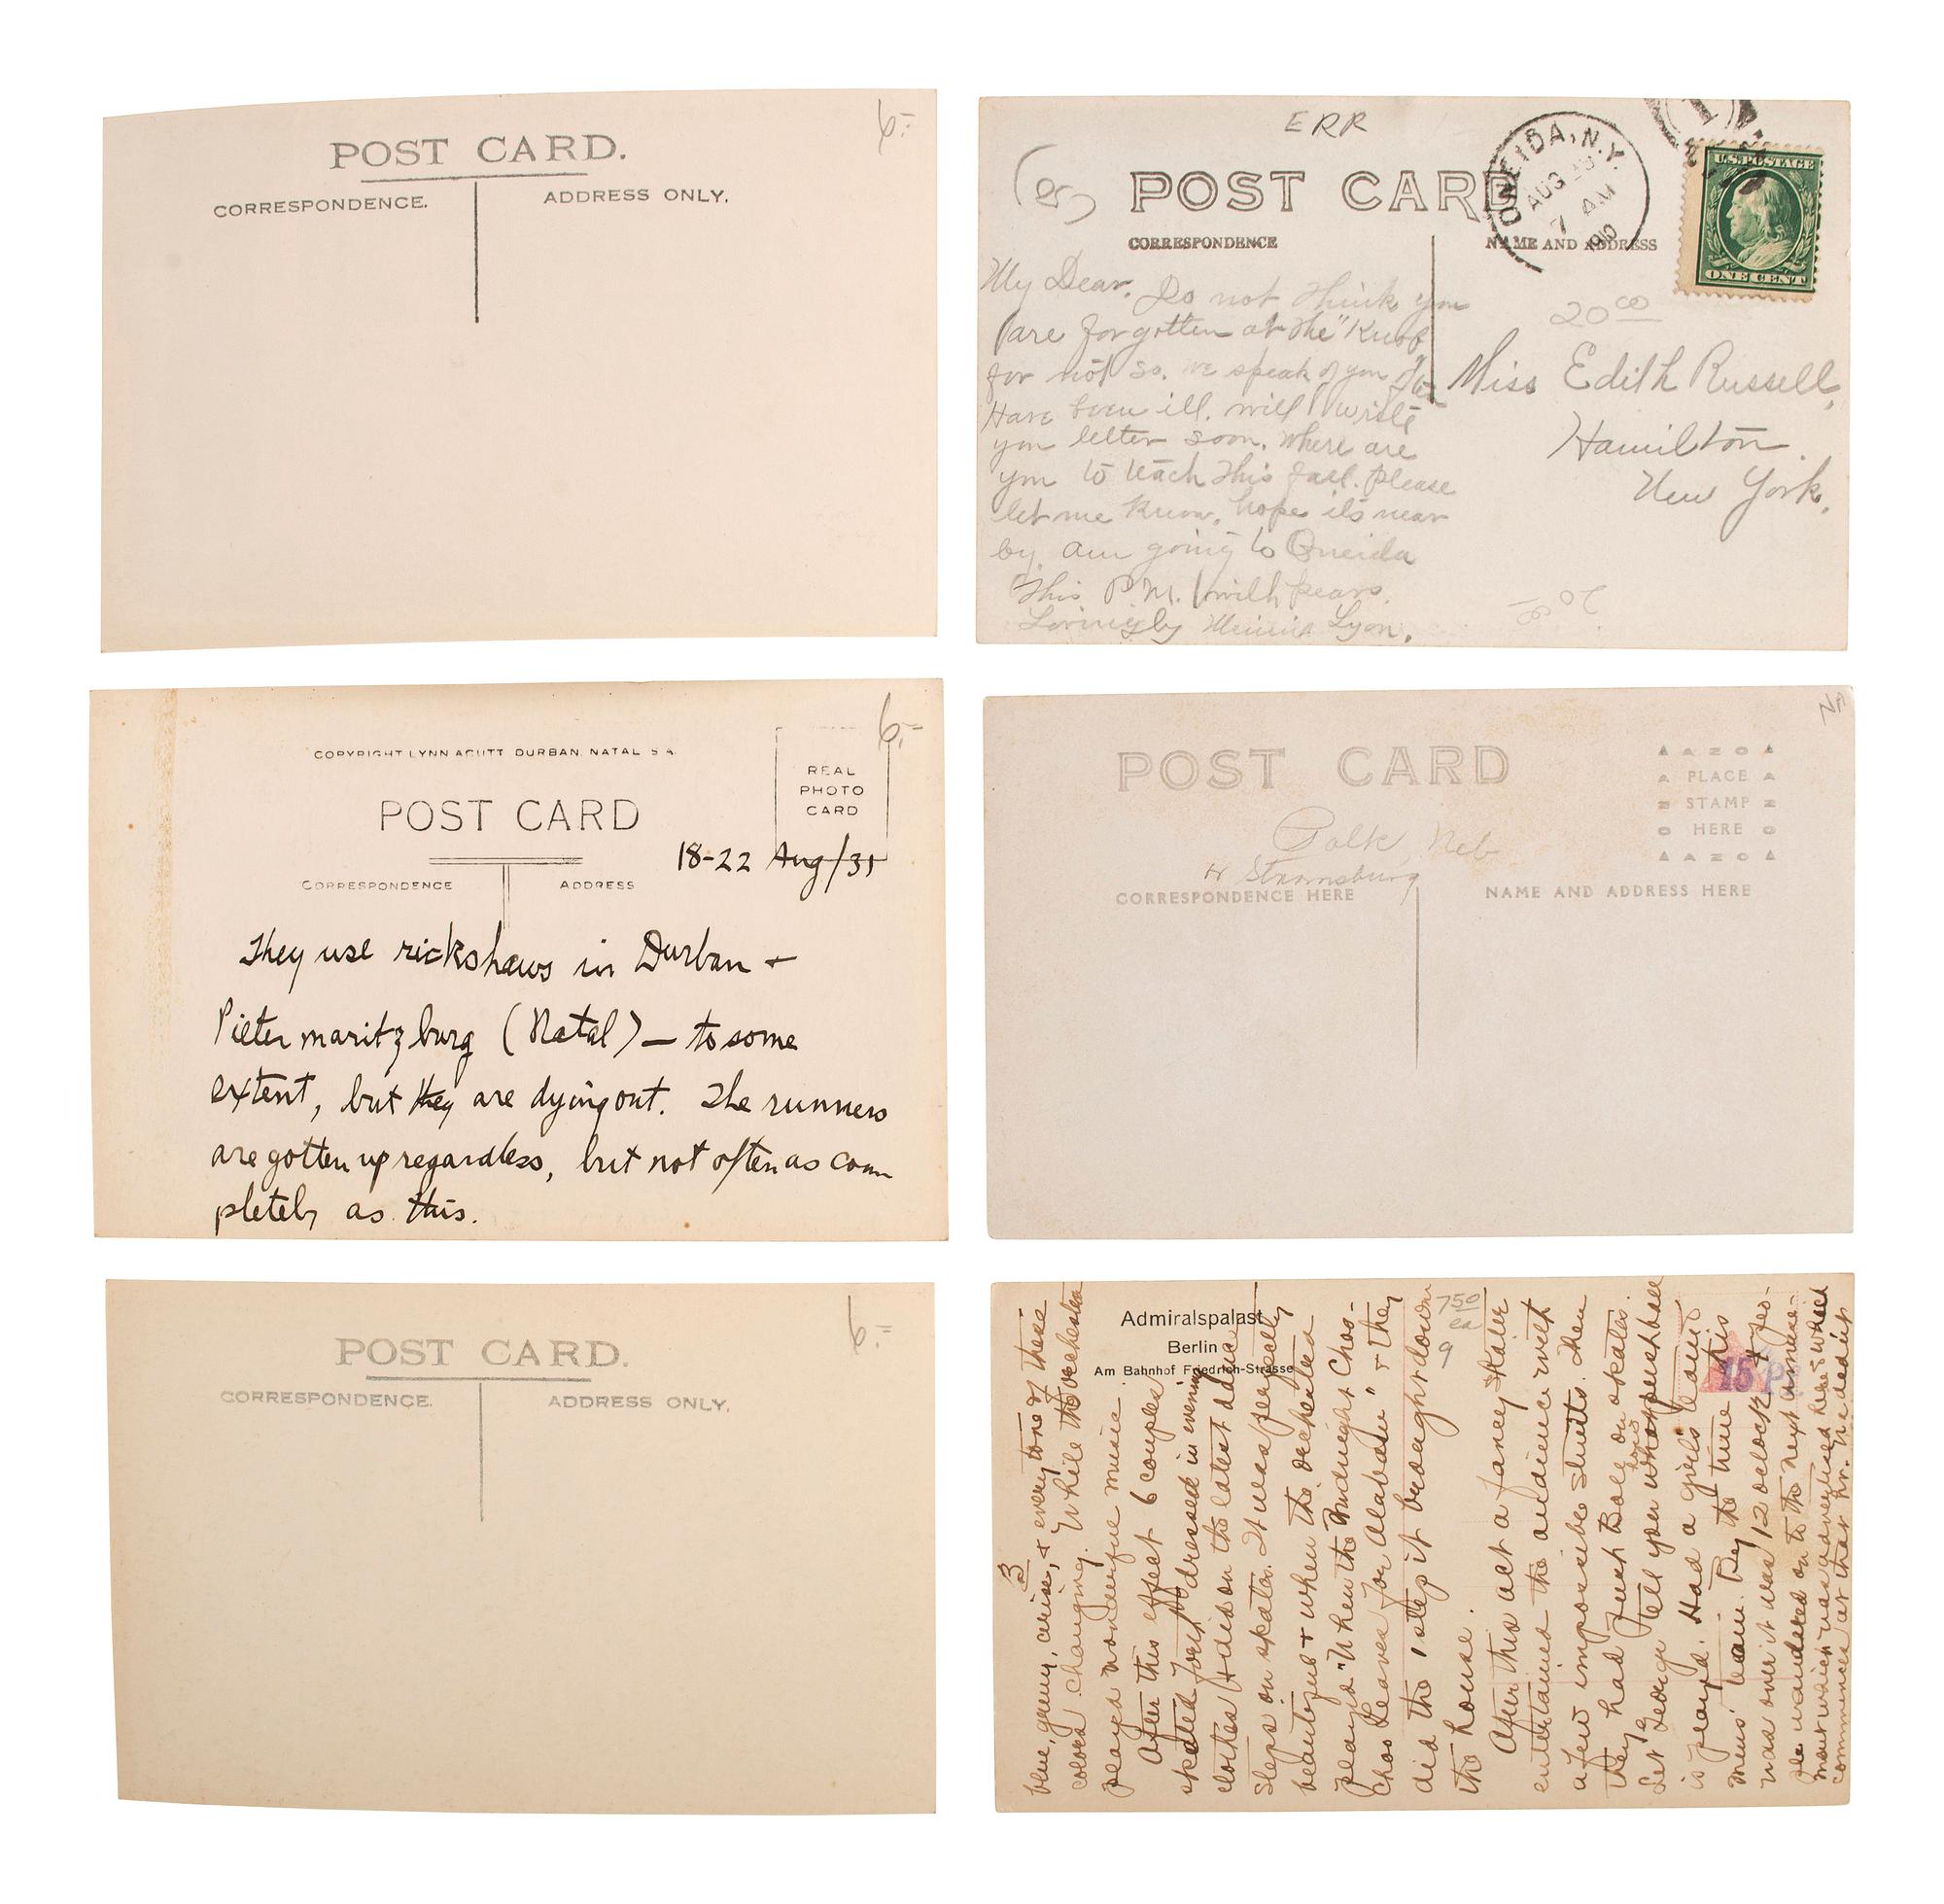 POST CARD.
CORRESPONDENCE.
ADDRESS ONLY.
6.-
ERR
POST CARD
CORRESPONDENCE
NAME AND ADDRESS
ONEIDA, N.Y.
AUG
7 AM
1910
U.S. POSTAGE
ONE CENT
My Dear. Do not think you
are forgotten at the "Knob"
for not so. we speak of you often
Have been ill. will write
you letter soon. Where are
you to teach this fall. please
let me know. hope its near
by. am going to Oneida
This P.M. with pears.
Lovingly Minnie Lyon.
20 00
Miss Edith Russell,
Hamilton.
New York.
COPYRIGHT LYNN ACUTT DURBAN. NATAL S A.
6.-
REAL
PHOTO
CARD
POST CARD
18-22 Aug/31
CORRESPONDENCE
ADDRESS
They use rickshaws in Durban +
Pietermaritzburg (Natal) — to some
extent, but they are dying out. The runners
are gotten up regardless, but not often as com
pletely as this.
POST CARD
AZO
PLACE
STAMP
HERE
AZO
Polk, Neb
or Stromsburg
CORRESPONDENCE HERE
NAME AND ADDRESS HERE
POST CARD.
CORRESPONDENCE.
ADDRESS ONLY.
6.-
Admiralspalast
Berlin
Am Bahnhof Friedrich-Strasse
7 50
ea
9
15 Pf
3
blue, green, cerise, + every tone of these
colors changing. While the orchestra
played wonderful music
After this effect 6 couples
skated forth dressed in evening
clothes + did on the latest dance
steps on skates. It was perfectly
beautiful + when the orchestra
played "When the Midnight Choo-
Choo Leaves for Alabam" + they
did the 1 step it brought down
the house.
After this act a fancy skater
entertained the audience with
a few impossible stunts. Then
they had Push Ball on skates.
Let George tell you how pushball
is played. Had a girls' team +
mens' team. By the time this
was over it was 12 oclock +
we wandered on to the next amuse-
ment which was advertised here + which
commences at that hr.